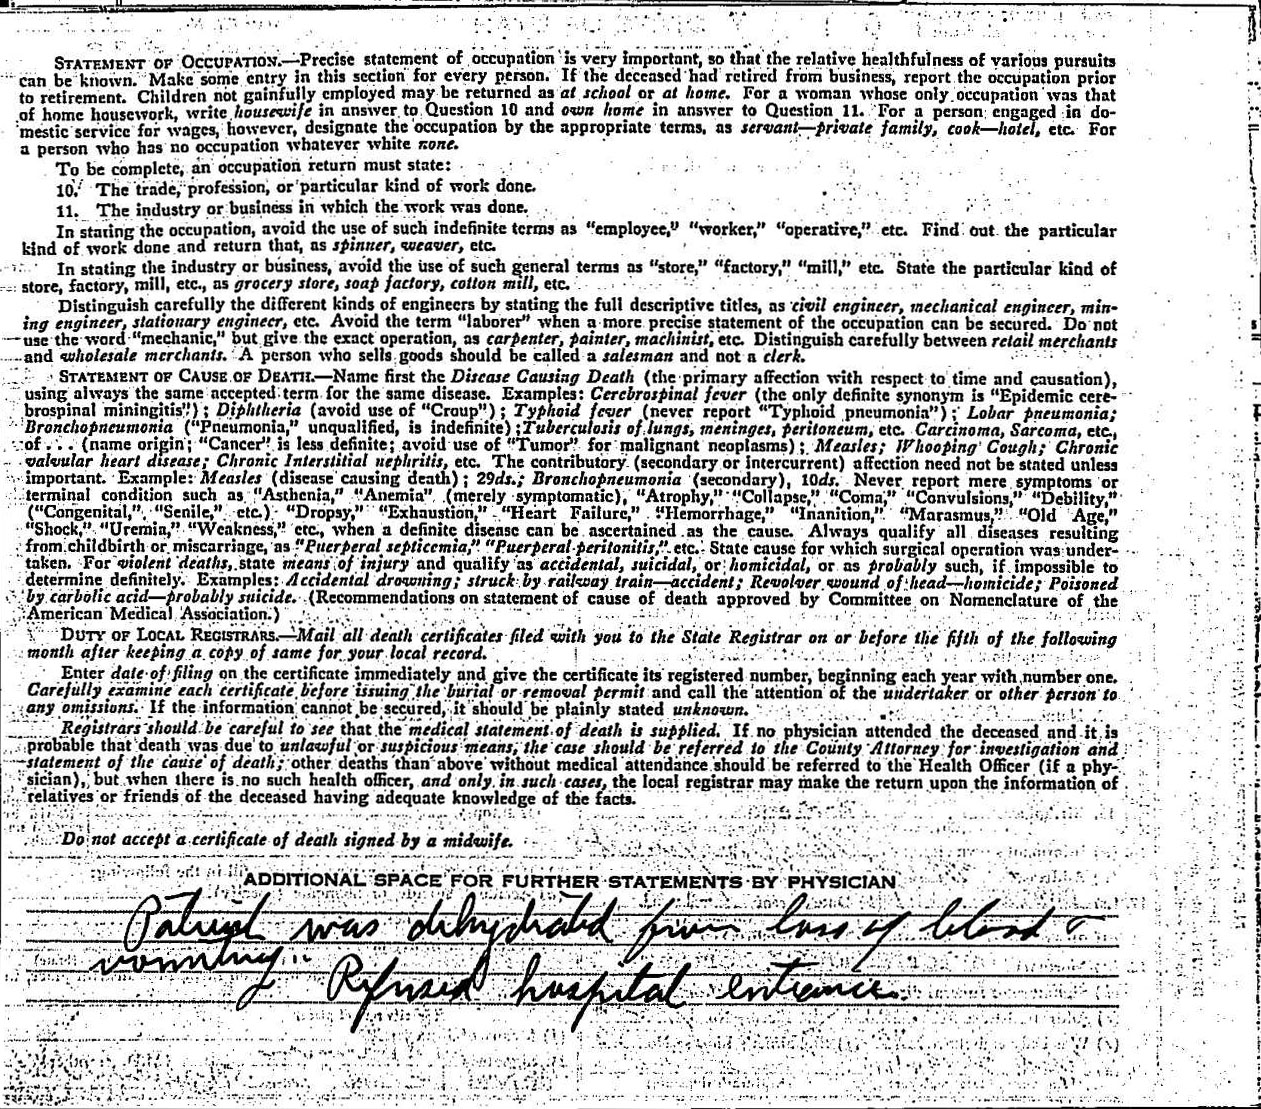 STATEMENT OF OCCUPATION.—Precise statement of occupation is very important, so that the relative healthfulness of various pursuits
can be known. Make some entry in this section for every person. If the deceased had retired from business, report the occupation prior
to retirement. Children not gainfully employed may be returned as at school or at home. For a woman whose only occupation was that
of home housework, write housewife in answer to Question 10 and own home in answer to Question 11. For a person engaged in do-
mestic service for wages, however, designate the occupation by the appropriate terms, as servant—private family, cook—hotel, etc. For
a person who has no occupation whatever white none.
To be complete, an occupation return must state:
10. The trade, profession, or particular kind of work done.
11. The industry or business in which the work was done.
In stating the occupation, avoid the use of such indefinite terms as "employee," "worker," "operative," etc. Find out the particular
kind of work done and return that, as spinner, weaver, etc.
In stating the industry or business, avoid the use of such general terms as "store," "factory," "mill," etc. State the particular kind of
store, factory, mill, etc., as grocery store, soap factory, cotton mill, etc.
Distinguish carefully the different kinds of engineers by stating the full descriptive titles, as civil engineer, mechanical engineer, min-
ing engineer, stationary engineer, etc. Avoid the term "laborer" when a more precise statement of the occupation can be secured. Do not
use the word "mechanic," but give the exact operation, as carpenter, painter, machinist, etc. Distinguish carefully between retail merchants
and wholesale merchants. A person who sells goods should be called a salesman and not a clerk.
STATEMENT OF CAUSE OF DEATH.—Name first the Disease Causing Death (the primary affection with respect to time and causation),
using always the same accepted term for the same disease. Examples: Cerebrospinal fever (the only definite synonym is "Epidemic cere-
brospinal miningitis"); Diphtheria (avoid use of "Croup"); Typhoid fever (never report "Typhoid pneumonia"); Lobar pneumonia;
Bronchopneumonia ("Pneumonia," unqualified, is indefinite); Tuberculosis of lungs, meninges, peritoneum, etc. Carcinoma, Sarcoma, etc.,
of . . . (name origin; "Cancer" is less definite; avoid use of "Tumor" for malignant neoplasms); Measles; Whooping Cough; Chronic
valvular heart disease; Chronic Interstitial nephritis, etc. The contributory (secondary or intercurrent) affection need not be stated unless
important. Example: Measles (disease causing death); 29ds.; Bronchopneumonia (secondary), 10ds. Never report mere symptoms or
terminal condition such as "Asthenia," "Anemia" (merely symptomatic), "Atrophy," "Collapse," "Coma," "Convulsions," "Debility,"
("Congenital," "Senile," etc.) "Dropsy," "Exhaustion," "Heart Failure," "Hemorrhage," "Inanition," "Marasmus," "Old Age,"
"Shock," "Uremia," "Weakness," etc., when a definite disease can be ascertained as the cause. Always qualify all diseases resulting
from childbirth or miscarriage, as "Puerperal septicemia," "Puerperal peritonitis," etc. State cause for which surgical operation was under-
taken. For violent deaths, state means of injury and qualify as accidental, suicidal, or homicidal, or as probably such, if impossible to
determine definitely. Examples: Accidental drowning; struck by railway train—accident; Revolver wound of head—homicide; Poisoned
by carbolic acid—probably suicide. (Recommendations on statement of cause of death approved by Committee on Nomenclature of the
American Medical Association.)
DUTY OF LOCAL REGISTRARS.—Mail all death certificates filed with you to the State Registrar on or before the fifth of the following
month after keeping a copy of same for your local record.
Enter date of filing on the certificate immediately and give the certificate its registered number, beginning each year with number one.
Carefully examine each certificate before issuing the burial or removal permit and call the attention of the undertaker or other person to
any omissions. If the information cannot be secured, it should be plainly stated unknown.
Registrars should be careful to see that the medical statement of death is supplied. If no physician attended the deceased and it is
probable that death was due to unlawful or suspicious means, the case should be referred to the County Attorney for investigation and
statement of the cause of death; other deaths than above without medical attendance should be referred to the Health Officer (if a phy-
sician), but when there is no such health officer, and only in such cases, the local registrar may make the return upon the information of
relatives or friends of the deceased having adequate knowledge of the facts.
Do not accept a certificate of death signed by a midwife.
ADDITIONAL SPACE FOR FURTHER STATEMENTS BY PHYSICIAN
Patient was dehydrated from loss of blood &
vomiting.
Refused hospital entrance.